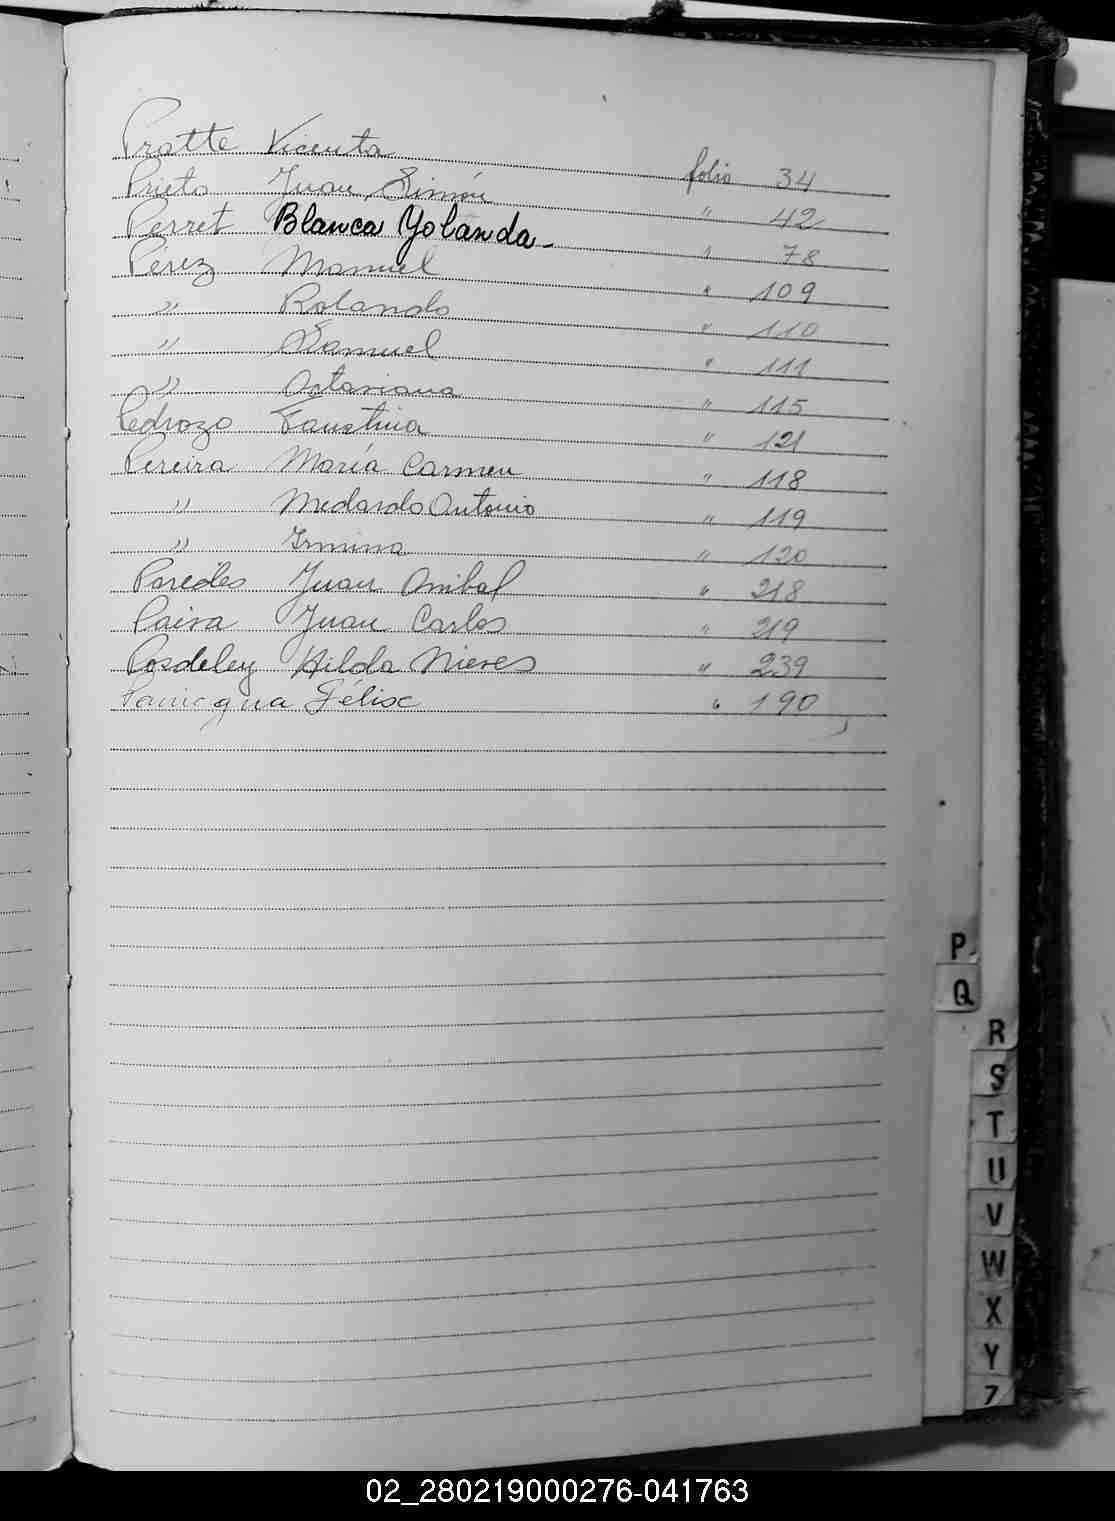 Pratte Vicenta folio 34
Prieto Juan Simón " 42
Perret Blanca Yolanda- " 78
Perez Manuel " 109
" Rolando " 110
" Samuel " 111
" Octaviana " 115
Pedrozo Faustina " 121
Pereira María Carmen " 118
" Medardo Antonio " 119
" Irmina " 120
Paredes Juan Anibal " 218
Paiva Juan Carlos " 219
Posdeley Hilda Nieves " 239
Paniagua Félix " 190
P
Q
R
S
T
U
V
W
X
Y
02_280219000276-041763